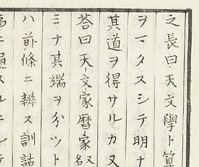 之長曰天文學ト算
ヲ一タスシテ明ナ
其道ヲ得サルカ又
荅曰天文家暦家
ミナ其端ヲ分ツト
ハ前條ニ辨ス訓詁